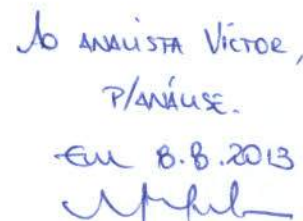 Ao ANALISTA VÍCTOR,
P/ANÁLISE.
Em 8.8.2013